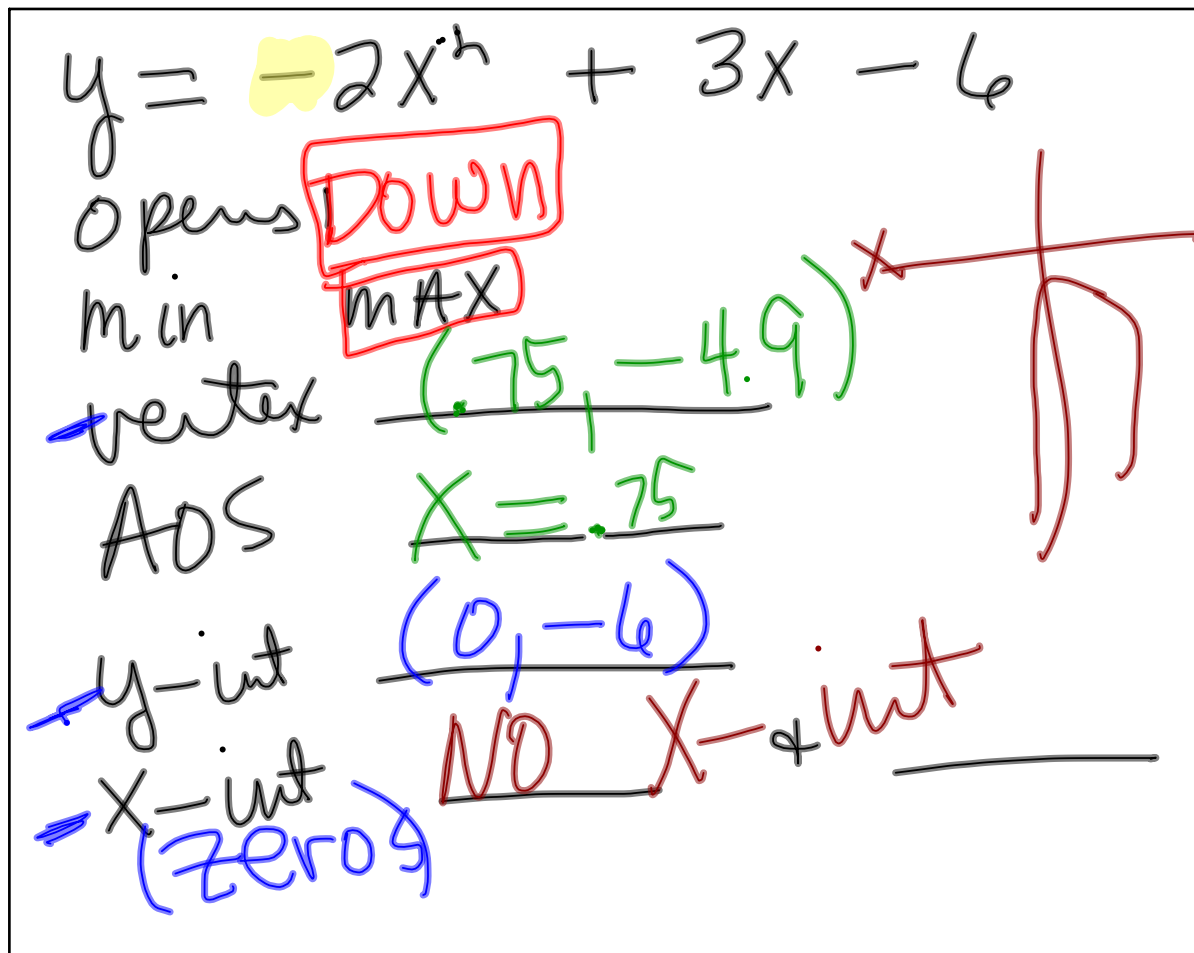 y = -2x² + 3x - 6
opens DOWN
min MAX
vertex (.75, -4.9)
AOS X = .75
y-int (0, -6)
x-int NO X-int &
(zeros)
X